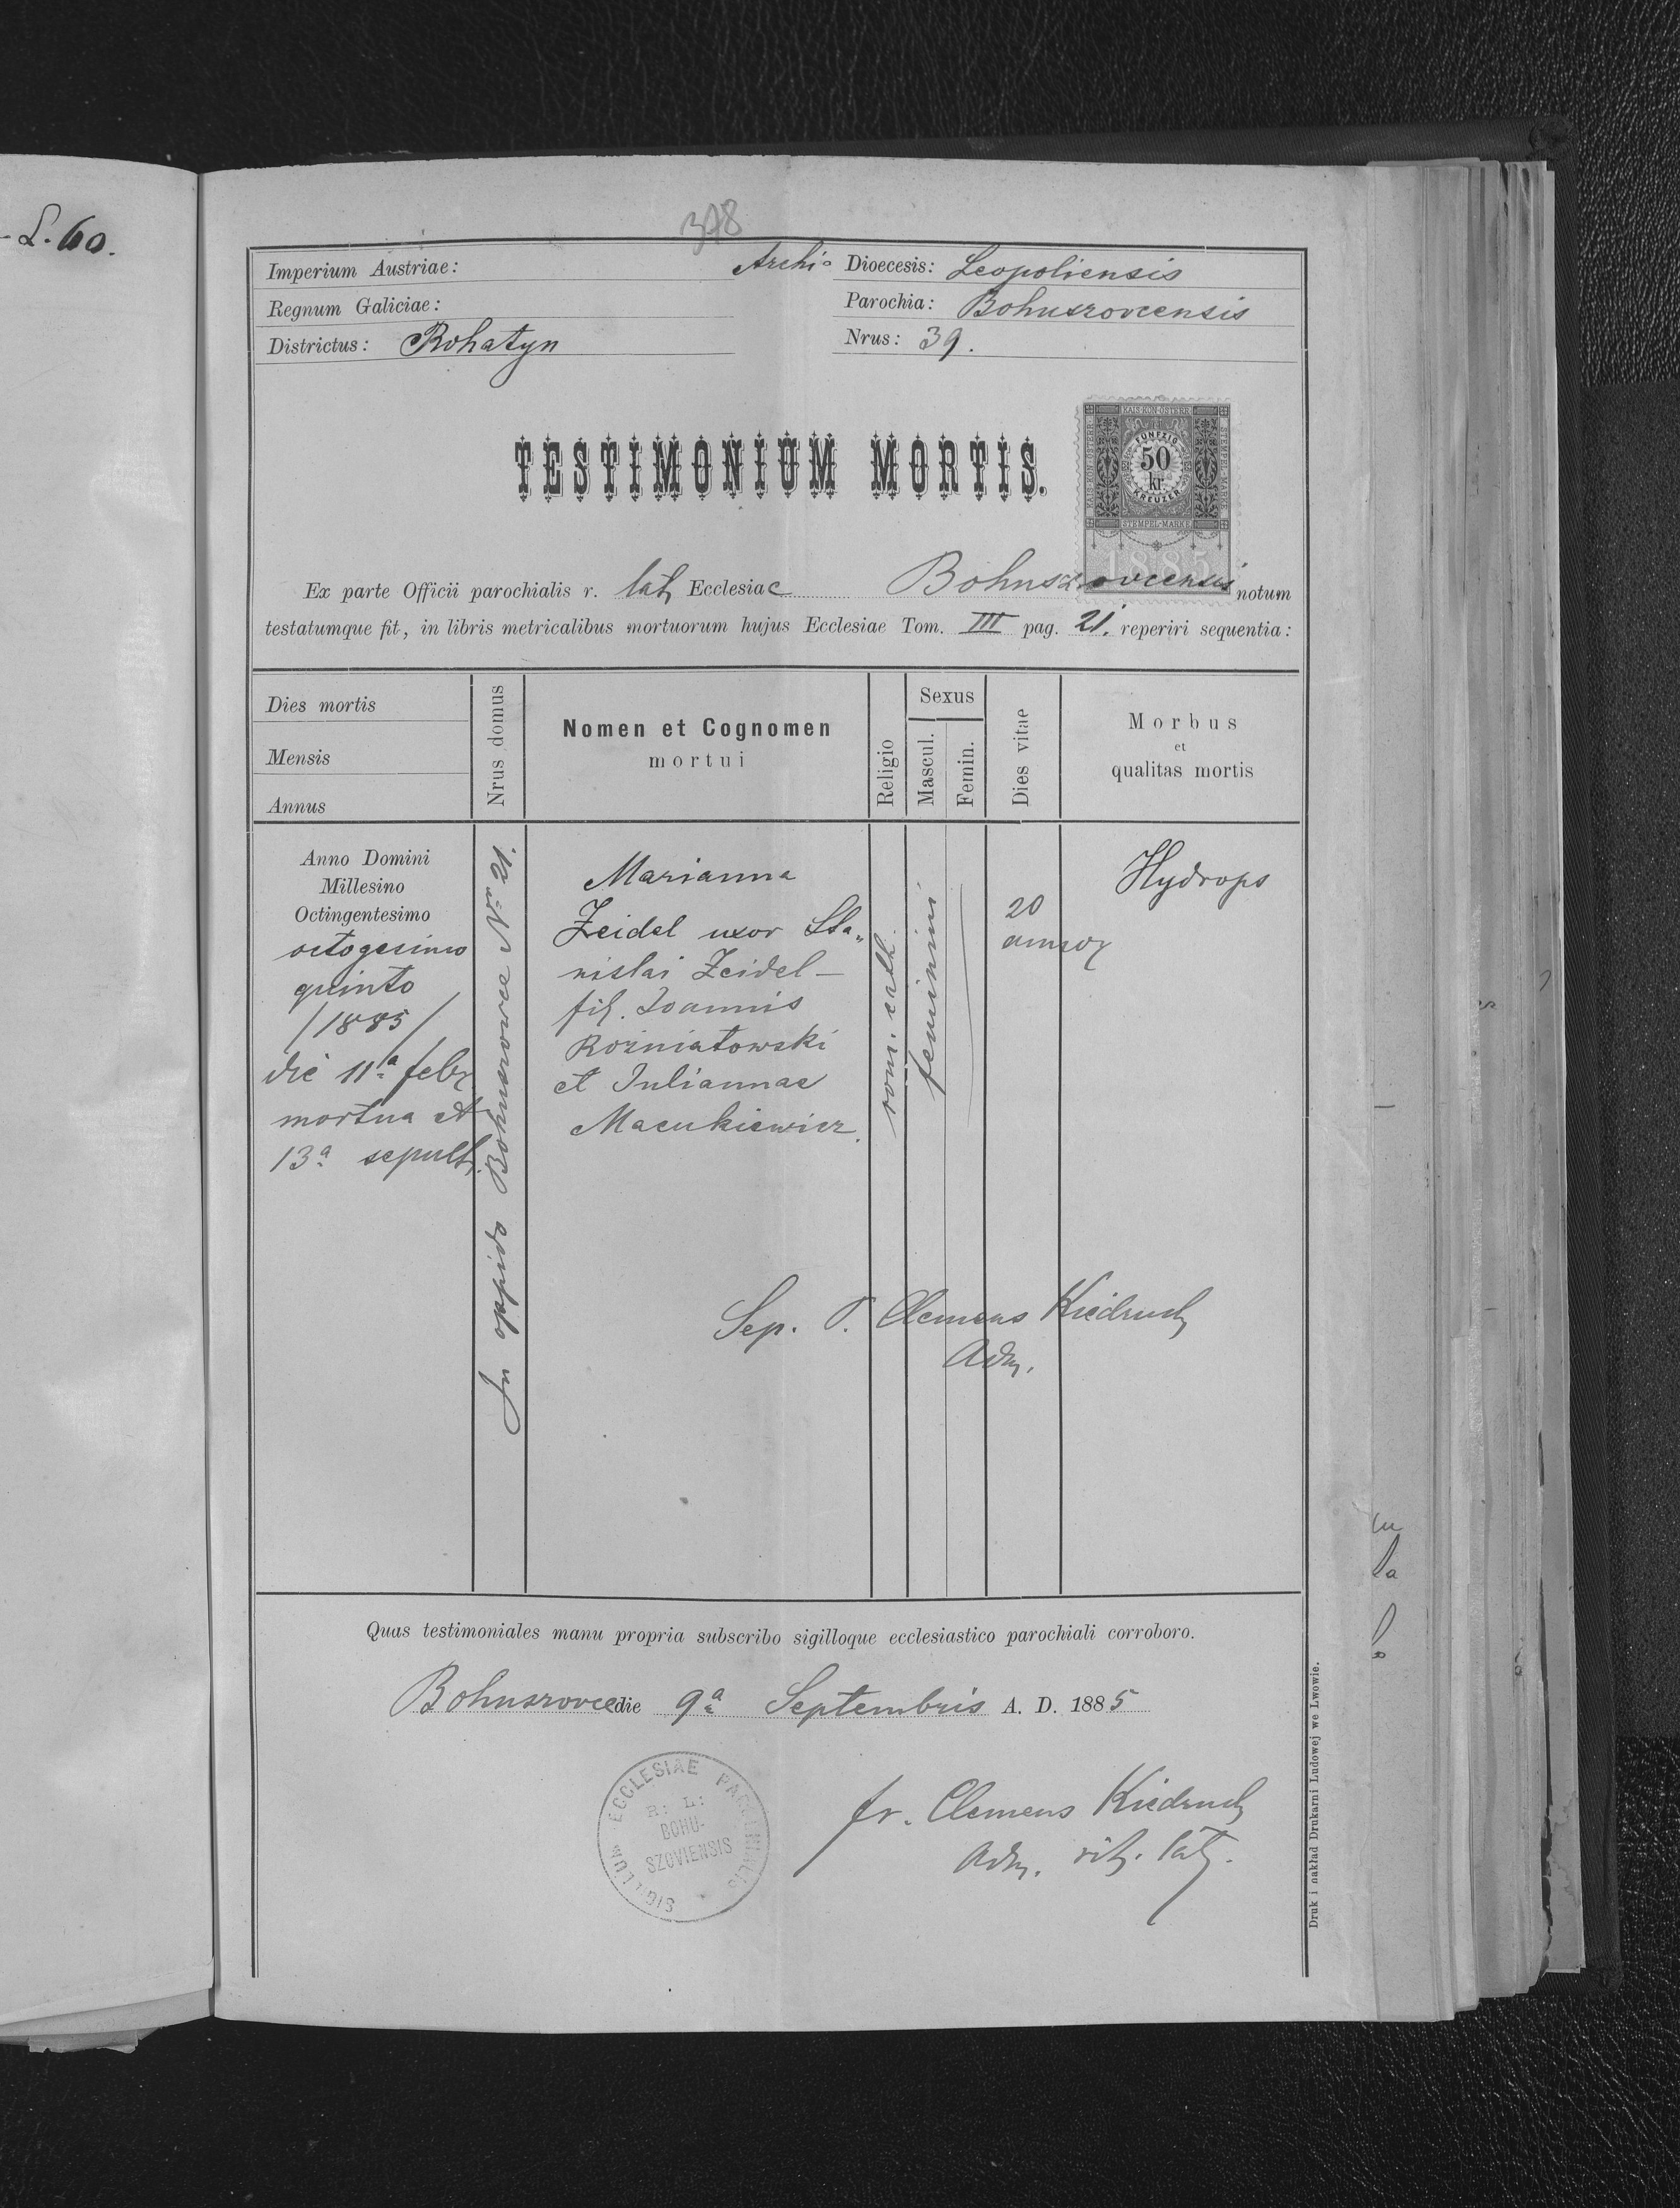 - L. 60.
378
Imperium Austriae:
Regnum Galiciae:
Districtus: Rohatyn
Archi- Dioecesis: Leopoliensis
Parochia: Bohuszovcensis
Nrus: 39.
TESTIMONIUM MORTIS.
KAIS·KÖN·ÖSTERR·
STEMPEL-MARKE
FÜNFZIG
50
kr
KREUZER
STEMPEL-MARKE
1885
Ex parte Officii parochialis r. lat. Ecclesiae Bohuszovcensis notum
testatumque fit, in libris metricalibus mortuorum hujus Ecclesiae Tom. III pag. 21. reperiri sequentia:
Dies mortis
Mensis
Annus
Nrus domus
Nomen et Cognomen
mortui
Religio
Sexus
Mascul.
Femin.
Dies vitae
Morbus
et
qualitas mortis
Anno Domini
Millesino
Octingentesimo
octogesimo
quinto
/1885/
die 11ª febr
mortua et
13ª sepult.
In oppido Bohuszowce Nr 21.
Marianna
Zeidel uxor Sta„
nislai Zeidel –
fil. Joannis
Rożniatowski
et Juliannae
Macukiewicz.
rom. cath.
feminini
20
annor
Hydrops
Sep. P. Clemens Kiedruch
Adm.
Quas testimoniales manu propria subscribo sigilloque ecclesiastico parochiali corroboro.
Bohuszowce die 9ª Septembris A. D. 1885
SIGILLUM ECCLESIAE PAROCHIALIS
R: L:
BOHU-
SZOVIENSIS
fr. Clemens Kiedruch
Adm. rit. lat.
Druk i nakład Drukarni Ludowej we Lwowie.